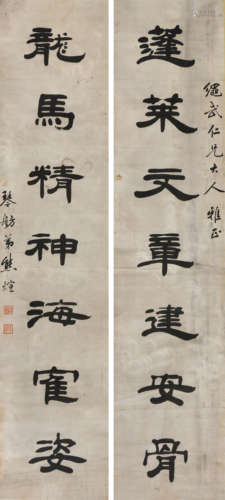 蓬莱文章建安骨
繩武仁兄大人雅正
龍馬精神海寉姿
琴舫弟熊煊